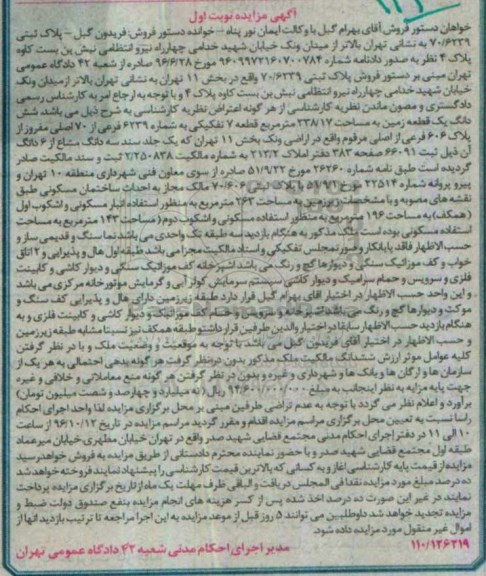 آگهی مزایده نوبت اول
خواهان دستور فروش آقای بهرام گبل با وکالت ایمان نور پناه - خوانده دستور فروش: فریدون گبل - پلاک ثبتی
۷۰/۶۲۳۹ به نشانی تهران بالاتر از میدان ونک خیابان شهید خدامی چهارراه نیرو انتظامی نبش بن بست کاوه
پلاک ۴ نظر به صدور دادنامه شماره ۹۶۰۹۹۷۲۱۶۰۷۰۰۷۸۴ مورخ ۹۶/۶/۲۸ صادره از شعبه ۴۲ دادگاه عمومی
تهران مبنی بر دستور فروش پلاک ثبتی ۷۰/۶۲۳۹ واقع در بخش ۱۱ تهران به نشانی تهران بالاتر از میدان ونک
خیابان شهید خدامی چهارراه نیرو انتظامی نبش بن بست کاوه پلاک ۴ و با توجه به ارجاع امر به کارشناس رسمی
دادگستری و مصون ماندن نظریه کارشناسی از هر گونه اعتراض نظریه کارشناسی به شرح ذیل می باشد: شش
دانگ یک قطعه زمین به مساحت ۳۳۸/۱۷ مترمربع قطعه ۷ تفکیکی به شماره ۶۲۳۹ فرعی از ۷۰ اصلی مفروز از
پلاک ۶۰۶ فرعی از اصلی مرقوم واقع در اراضی ونک بخش ۱۱ تهران که یک جلد سند سه دانگ مشاع از ۶ دانگ
آن ذیل ثبت ۶۶۰۹۱ صفحه ۳۸۳ دفتر املاک ۲۱۳/۲ به شماره مالکیت ۲/۲۵۰۸۳۸ ثبت و سند مالکیت صادر
گردیده است طبق نامه شماره ۲۶۲۶۰ مورخ ۵۱/۹/۲۲ صادره از سوی معاون فنی شهرداری منطقه ۱۰ تهران و
پیرو پروانه شماره ۲۲۵۱۴ مورخ با پلاک ثبتی ۷۰/۶۰۶ مالک مجاز به احداث ساختمان مسکونی طبق
نقشه های مصوبه و با مشخصات زیرزمین به مساحت ۲۶۲ مترمربع به منظور استفاده انبار مسکونی و اشکوب اول
(همکف) به مساحت ۱۹۶ مترمربع به منظور استفاده مسکونی و اشکوب دوم ( مساحت ۱۴۳ مترمربع به مساحت
استفاده مسکونی بوده است ملک مذکور به هنگام بازدید سه طبقه تک واحدی می باشد نما سنگ و قدیمی ساز و
حسب الاظهار فاقد پایانکار و صورتمجلس تفکیکی و اسناد مالکیت مجزا می باشد طبقه اول هال و پذیرایی و ۲ اتاق
خواب و کف موزائیک سنگی و دیوارها گچ و رنگ می باشد آشپزخانه کف موزائیک سنگی و دیوار کاشی و کابینت
فلزی و سرویس و حمام سرامیک و دیوار کاشی سیستم سرمایش کولر آبی و گرمایش موتورخانه مرکزی می باشد
و این واحد حسب الاظهار در اختیار اقای بهرام گبل قرار دارد طبقه زیرزمین دارای هال و پذیرایی کف سنگ و
موکت و دیوارها گچ و رنگ می باشد آشپزخانه و سرویس و حمام کف موزائیک و دیوار کاشی و کابینت فلزی و به
هنگام بازدید حسب الاظهار سابقا در اختیار والدین طرفین قرار داشتو طبقه همکف نیز نسبتا مشابه طبقه زیرزمین
و حسب الاظهار در اختیار آقای فریدون گبل می باشد با توجه به موقعیت و وضعیت ملک و با در نظر گرفتن
کلیه عوامل موثر ارزش ششدانگ مالکیت ملک مذکور بدون درنظر گرفت هر گونه بدهی احتمالی به هر یک از
سازمان ها و ارگان ها و بانک ها و شهرداری و غیره و بدون در نظر گرفتن هر گونه منع معاملاتی و خلافی و غیره
جهت پایه مزایه به نظر اینجانب به مبلغ ۹۴/۶۰۰/۰۰۰/۰۰۰ ریال (نه میلیارد و چهارصد و شصت میلیون تومان)
برآورد و اعلام نظر می گردد با توجه به عدم تراضی طرفین مبنی بر محل برگزاری مزایده لذا واحد اجرای احکام
راسا نسبت به تعیین محل برگزاری مراسم مزایده اقدام و مقرر گردید مراسم مزایده در تاریخ ۹۶/۱۰/۱۲ از ساعت
۱۰ الی ۱۱ در دفتر اجرای احکام مدنی مجتمع قضایی شهید صدر واقع در تهران خیابان مطهری خیابان میرعماد
طبقه اول مجتمع قضایی شهید صدر و با حضور نماینده محترم دادستانی از طریق مزایده به فروش خواهد رسید
مزایده از قیمت پایه کارشناسی اغاز و به کسانی که بالاترین قیمت کارشناسی را پیشنهاد نمایند فروخته خواهد شد
ده درصد مبلغ مورد مزایده نقدا فی المجلس دریافت و الباقی ظرف مهلت یک ماه از تاریخ برگزاری مزایده پرداخت
نمایند در غیر این صورت ده درصد اخذ شده پس از کسر هزینه های انجام مزایده بنفع صندوق دولت ضبط و
مزایده تجدید خواهد شد داوطلبین می توانند ۵ روز قبل از موعد مزایده به این اجرا مراجعه تا ترتیب بازدید انها از
اموال غیر منقول مورد مزایده داده شود.
۱۱۰/۱۲۶۲۱۹ مدیر اجرای احکام مدنی شعبه ۴۲ دادگاه عمومی تهران